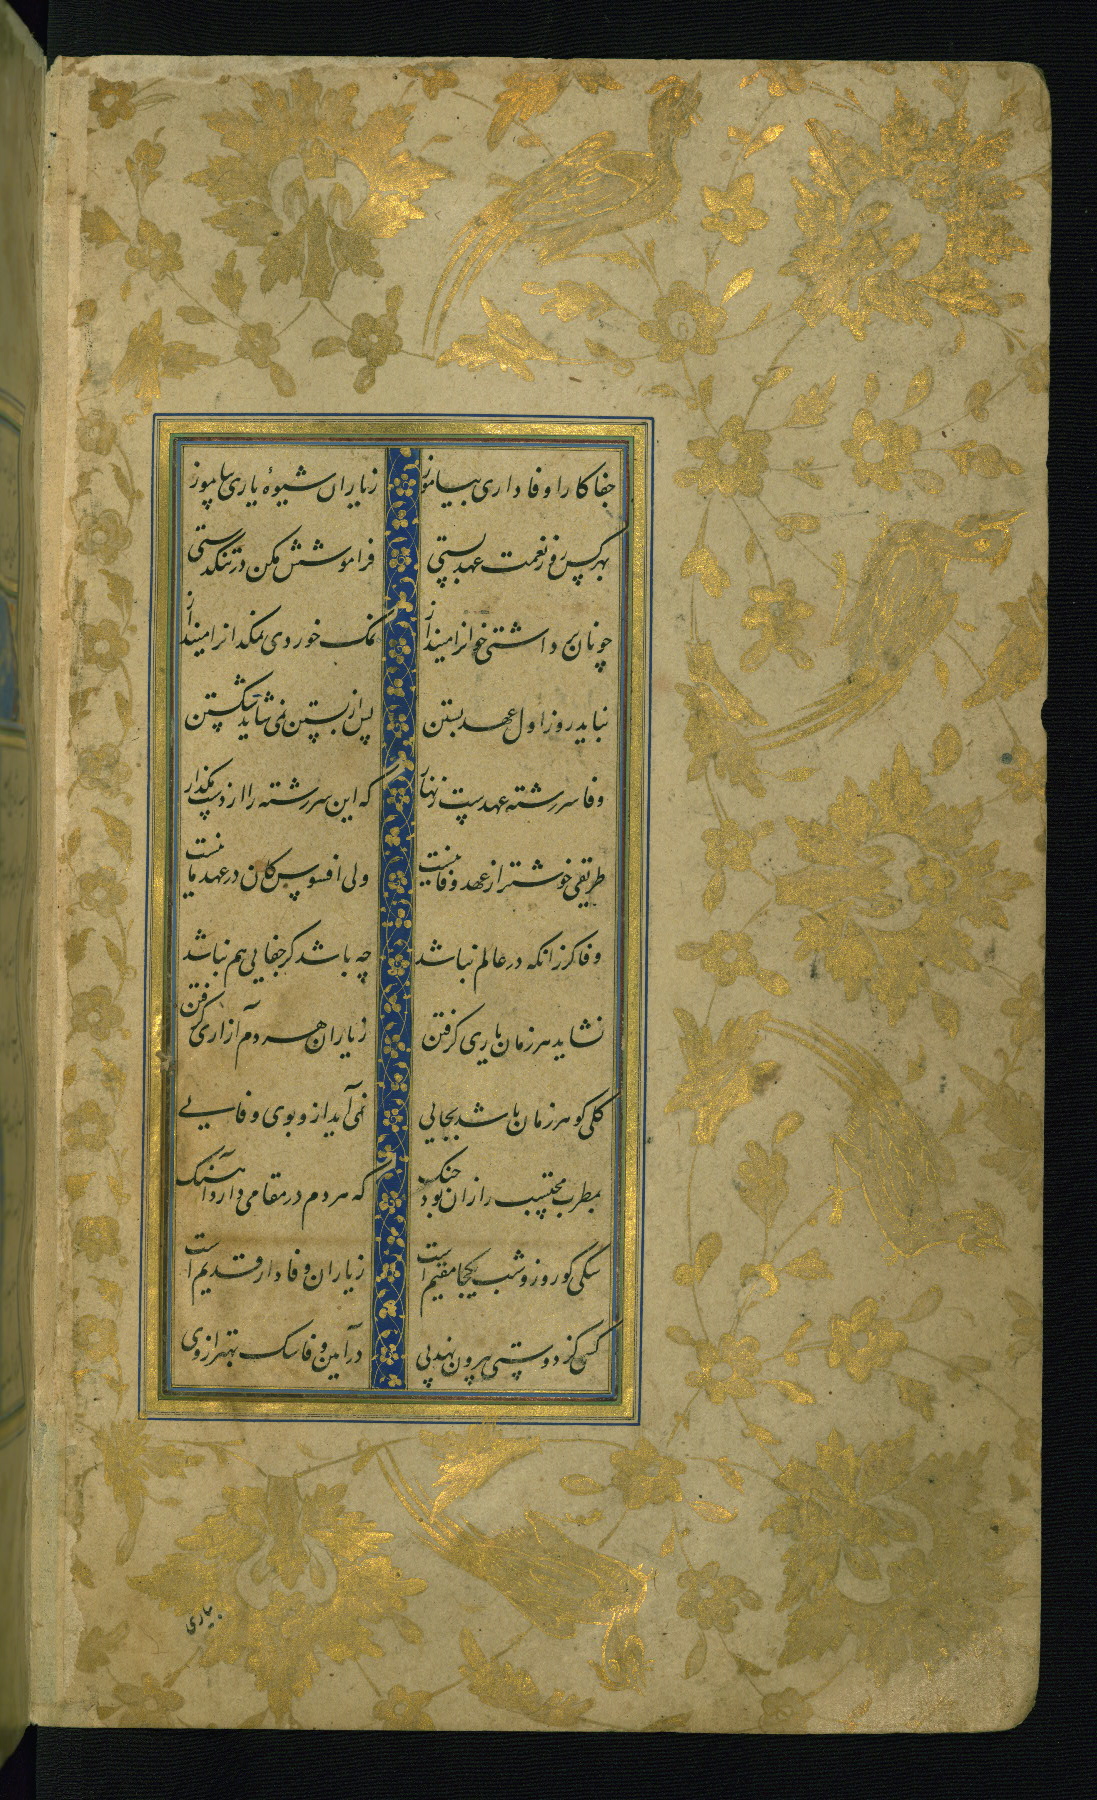 جفاکارا وفاداری بیاموز زیاران شیوهٔ یاری بیاموز
بهر کس روز نعمت عهد بستی فراموشش مکن در تنگدستی
چو نان برداشتی خوانرا مینداز نمک خوردی نمکدانرا مینداز
نباید روز اول عهد بستن پس از بستن نمی شاید شکستن
وفا سررشته عهدست زنهار که این سررشته را از دست مگذار
طریقی خوشتر از عهد و وفا نیست ولی افسوس کان در عهد ما نیست
وفا کر زانکه در عالم نباشد چه باشد کر جفایی هم نباشد
نشاید هر زمان یاری کرفتن زیاران هر دم آزاری کرفتن
کلی کو هر زمان باشد بجایی نمی آید ازو بوی وفایی
بمطرب محتسب را زان بود جنک که هر دم در مقامی دارد آهنک
سکی کو روز و شب یکجا مقیم است زیاران وفادار قدیم است
کسی کز دوستی بیرون نهد پی در آیین وفا سک بهتر از وی
بیاری